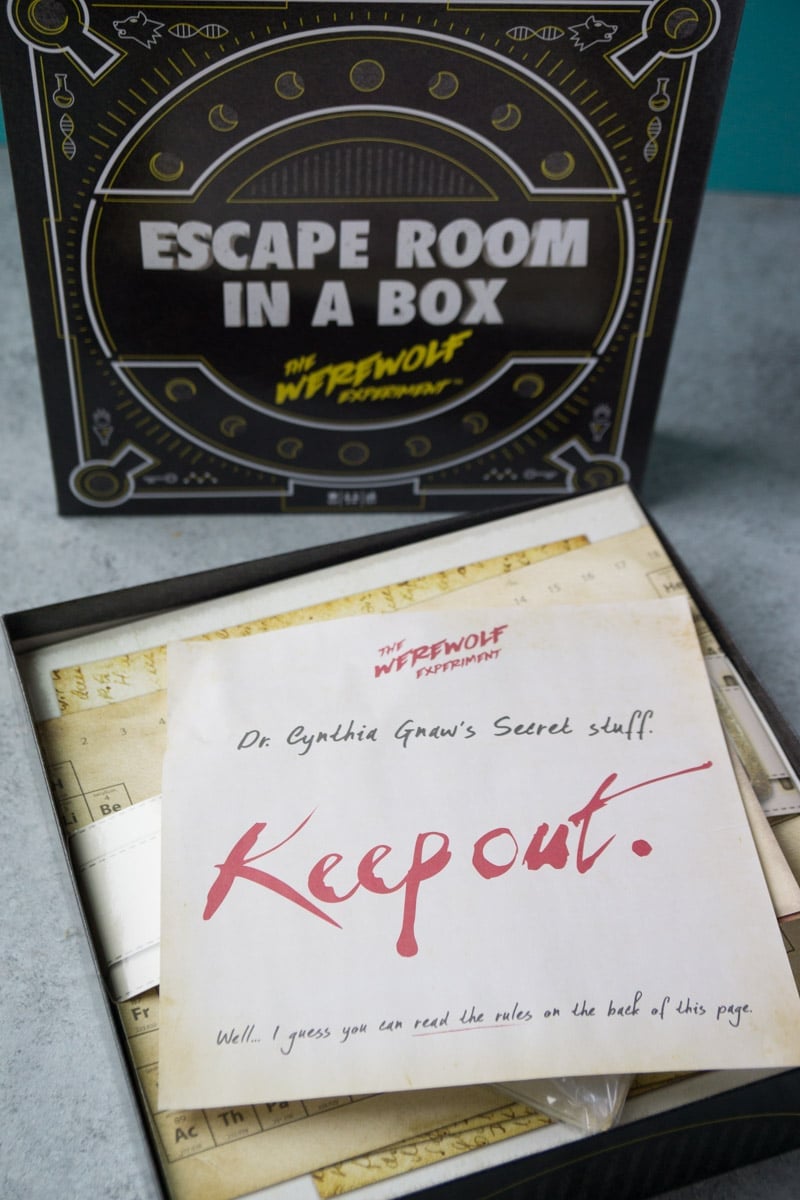 ESCAPE ROOM
IN A BOX
THE
WEREWOLF
EXPERIMENT™
THE
WEREWOLF
EXPERIMENT
Dr. Cynthia Gnaw's Secret stuff.
Keep out.
Well... I guess you can read the rules on the back of this page.
2 3 4
14 15 16 17 18
H
He
Li Be
Fr
Ac Th Pa